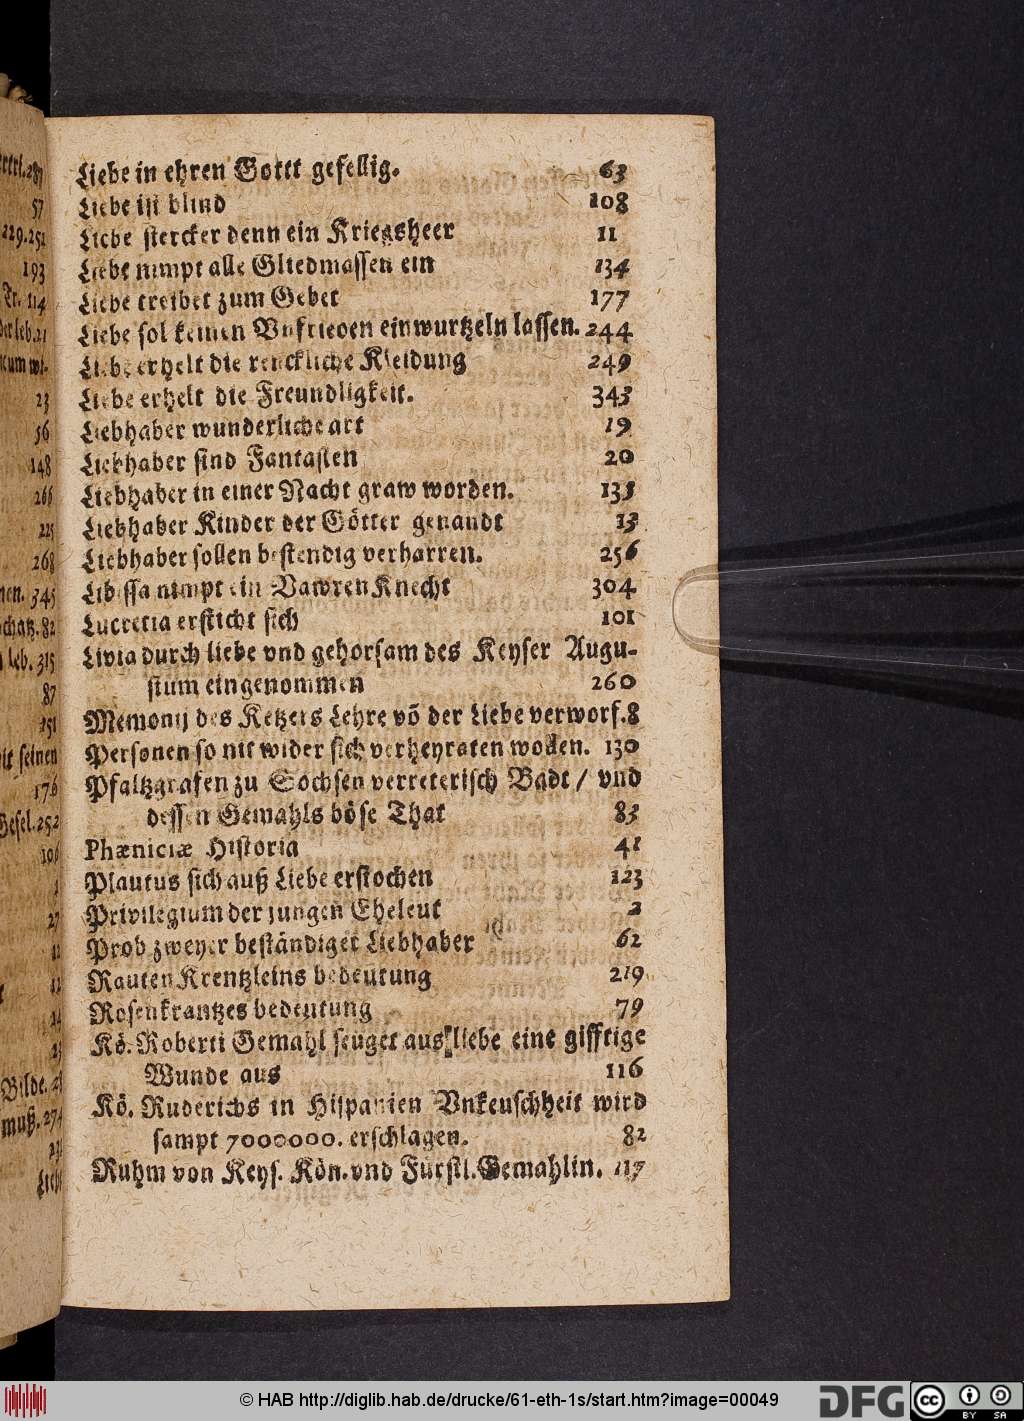 57
229.252
193
Tr. 114
der leb. 21
23
56
148
266
225
268
nen. 345
schatz. 82
leb. 315
87
151
mit seinen
176
Gesel. 252
106
1
27
12
12
14
23
Bilde.
muß. 274
Lieb
Liebe in ehren Gottt gefellig. 63
Liebe ist blind 108
Liebe stercker denn ein Kriegsheer 11
Liebe nimpt alle Gliedmassen ein 134
Liebe treibet zum Gebet 177
Liebe sol keinen Vnfrieden einwurtzeln lassen. 244
Liebe erhelt die renckliche Kleidung 249
Liebe erhelt die Freundligkeit. 343
Liebhaber wunderliche art 19
Liebhaber sind Fantasten 20
Liebhaber in einer Nacht graw worden. 133
Liebhaber Kinder der Götter genandt 13
Liebhaber sollen bestendig verharren. 256
Libissa nimpt ein Bawren Knecht 304
Lucretia ersticht sich 101
Livia durch liebe vnd gehorsam des Keyser Augu-
stum eingenommen 260
Memonij des Ketzers Lehre võ der Liebe verworf. 8
Personen so nit wider sich verheyraten wollen. 130
Pfaltzgrafen zu Sachsen verreterisch Badt / vnd
dessen Gemahls böse That 83
Phæniciæ Historia 41
Plautus sich auß Liebe erstochen 123
Privilegium der jungen Eheleut 2
Prob zweyer beständiger Liebhaber 62
Rauten Krentzleins bedeutung 219
Rosenkrantzes bedeutung 79
Kö. Roberti Gemahl seuget aus liebe eine gifftige
Wunde aus 116
Kö. Ruderichs in Hispanien Vnkeuschheit wird
sampt 7000000. erschlagen. 82
Ruhm von Keys. Kön. vnd Fürstl. Gemahlin. 117
© HAB http://diglib.hab.de/drucke/61-eth-1s/start.htm?image=00049
DFG
cc BY SA